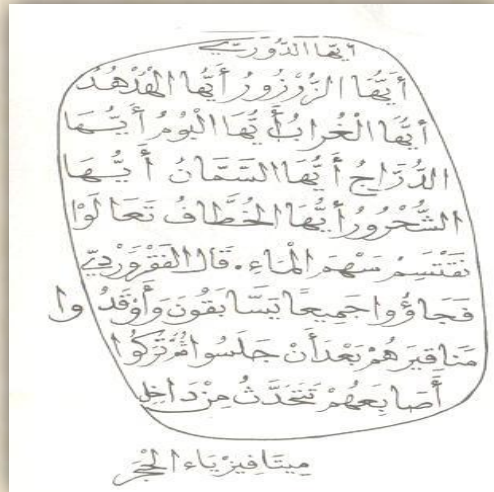 أيها الدوري
أَيُّهَا الزُّرْزُورُ أَيُّهَا الهُدْهُدُ
أَيُّهَا الْغُرَابُ أَيُّهَا الْبُومُ أَيُّهَا
الدُّرَّاجُ أَيُّهَا السَّمَّانُ أَيُّهَا
الشُّحْرُورُ أَيُّهَا الخُطَّافُ تَعَالَوْا
نَقْتَسِمْ سَهْمَ الْمَاءِ. قَالَ
فَجَاؤُوا جَمِيعًا يَتَسَابَقُونَ وَأَوْقَدُوا
مَنَاقِيرَهُمْ بَعْدَ أَنْ جَلَسُوا ثُمَّ تَرَكُوا
أَصَابِعَهُمْ تَتَحَدَّثُ مِنْ دَاخِلِ
مِيتَافِيزْيَاءِ الحَجَرِ